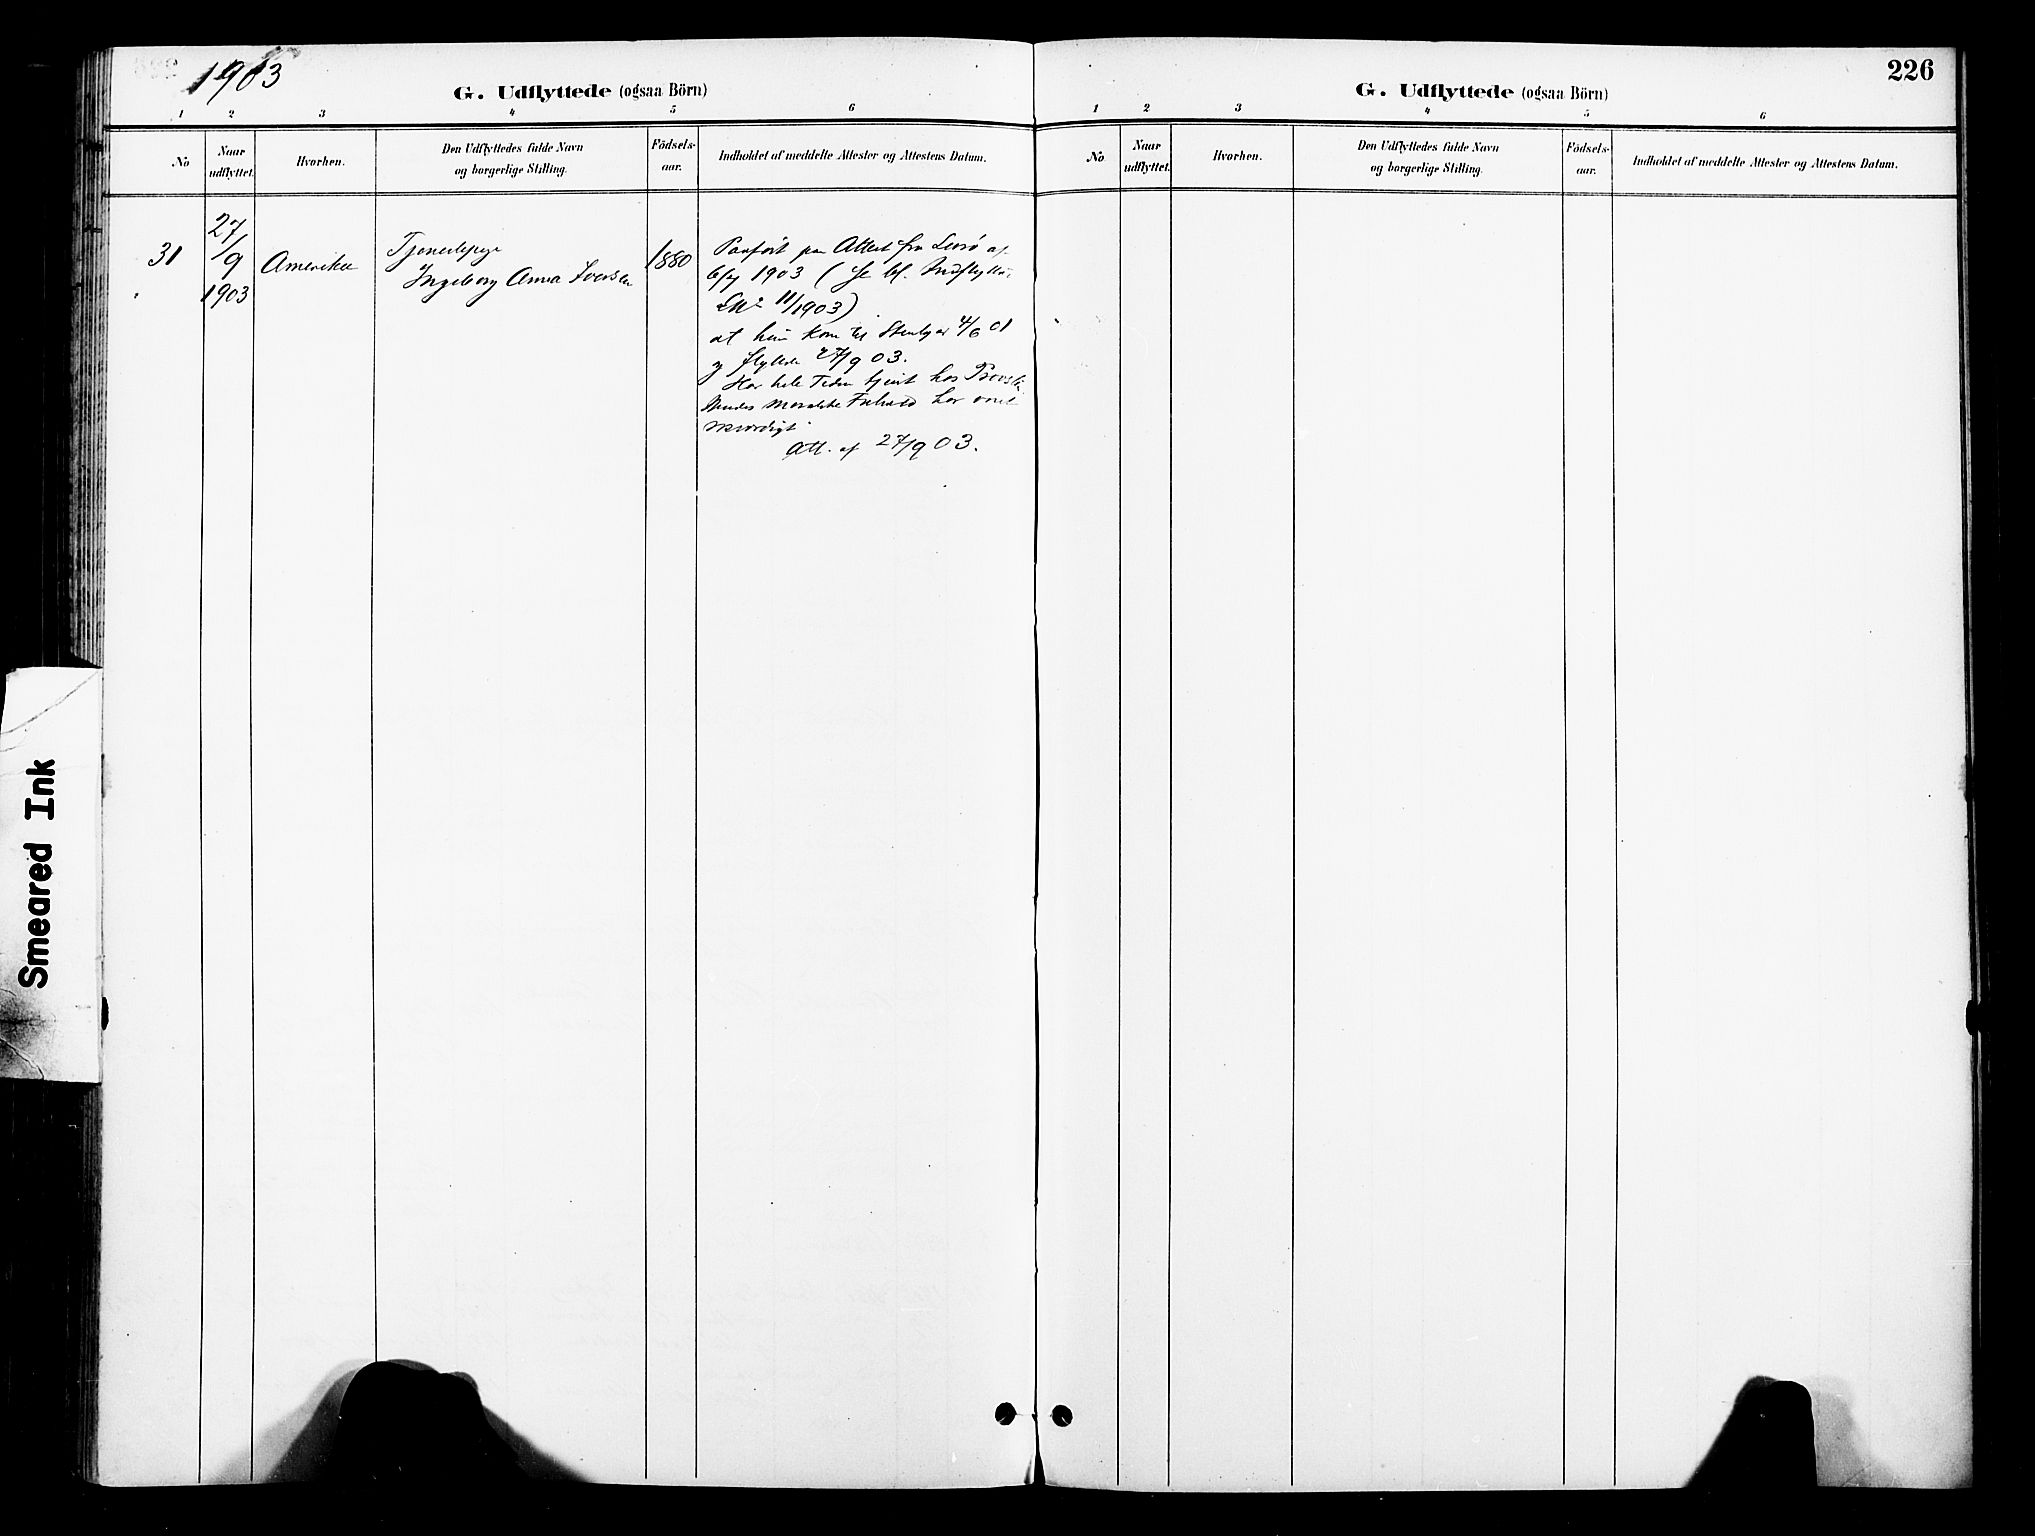 1903
226
G. Udflyttede (ogsaa Börn)
G. Udflyttede (ogsaa Börn)
1 2 3 4 5 6
1 2 3 4 5 6
No
Naar udflyttet.
Hvorhen.
Den Udflyttedes fulde Navn
og borgerlige Stilling.
Födsels-
aar.
Indholdet af meddelte Attester og Attestens Datum.
No
Naar udflyttet.
Hvorhen.
Den Udflyttedes fulde Navn
og borgerlige Stilling.
Födsels-
aar.
Indholdet af meddelte Attester og Attestens Datum.
31
27/9
1903
Amerika
Tjenestepige
Ingeborg Anna Iversen
1880
Paaført paa Attest fra af
1903 ( se bl. Indflyttn.
11/1903)
at hun kom til Stenkjær 4/6 01
og flyttede 27/9 03.
Har hele Tiden tjent hos
moralske Forhold har
Att. af 27/9 03.
Smeared Ink